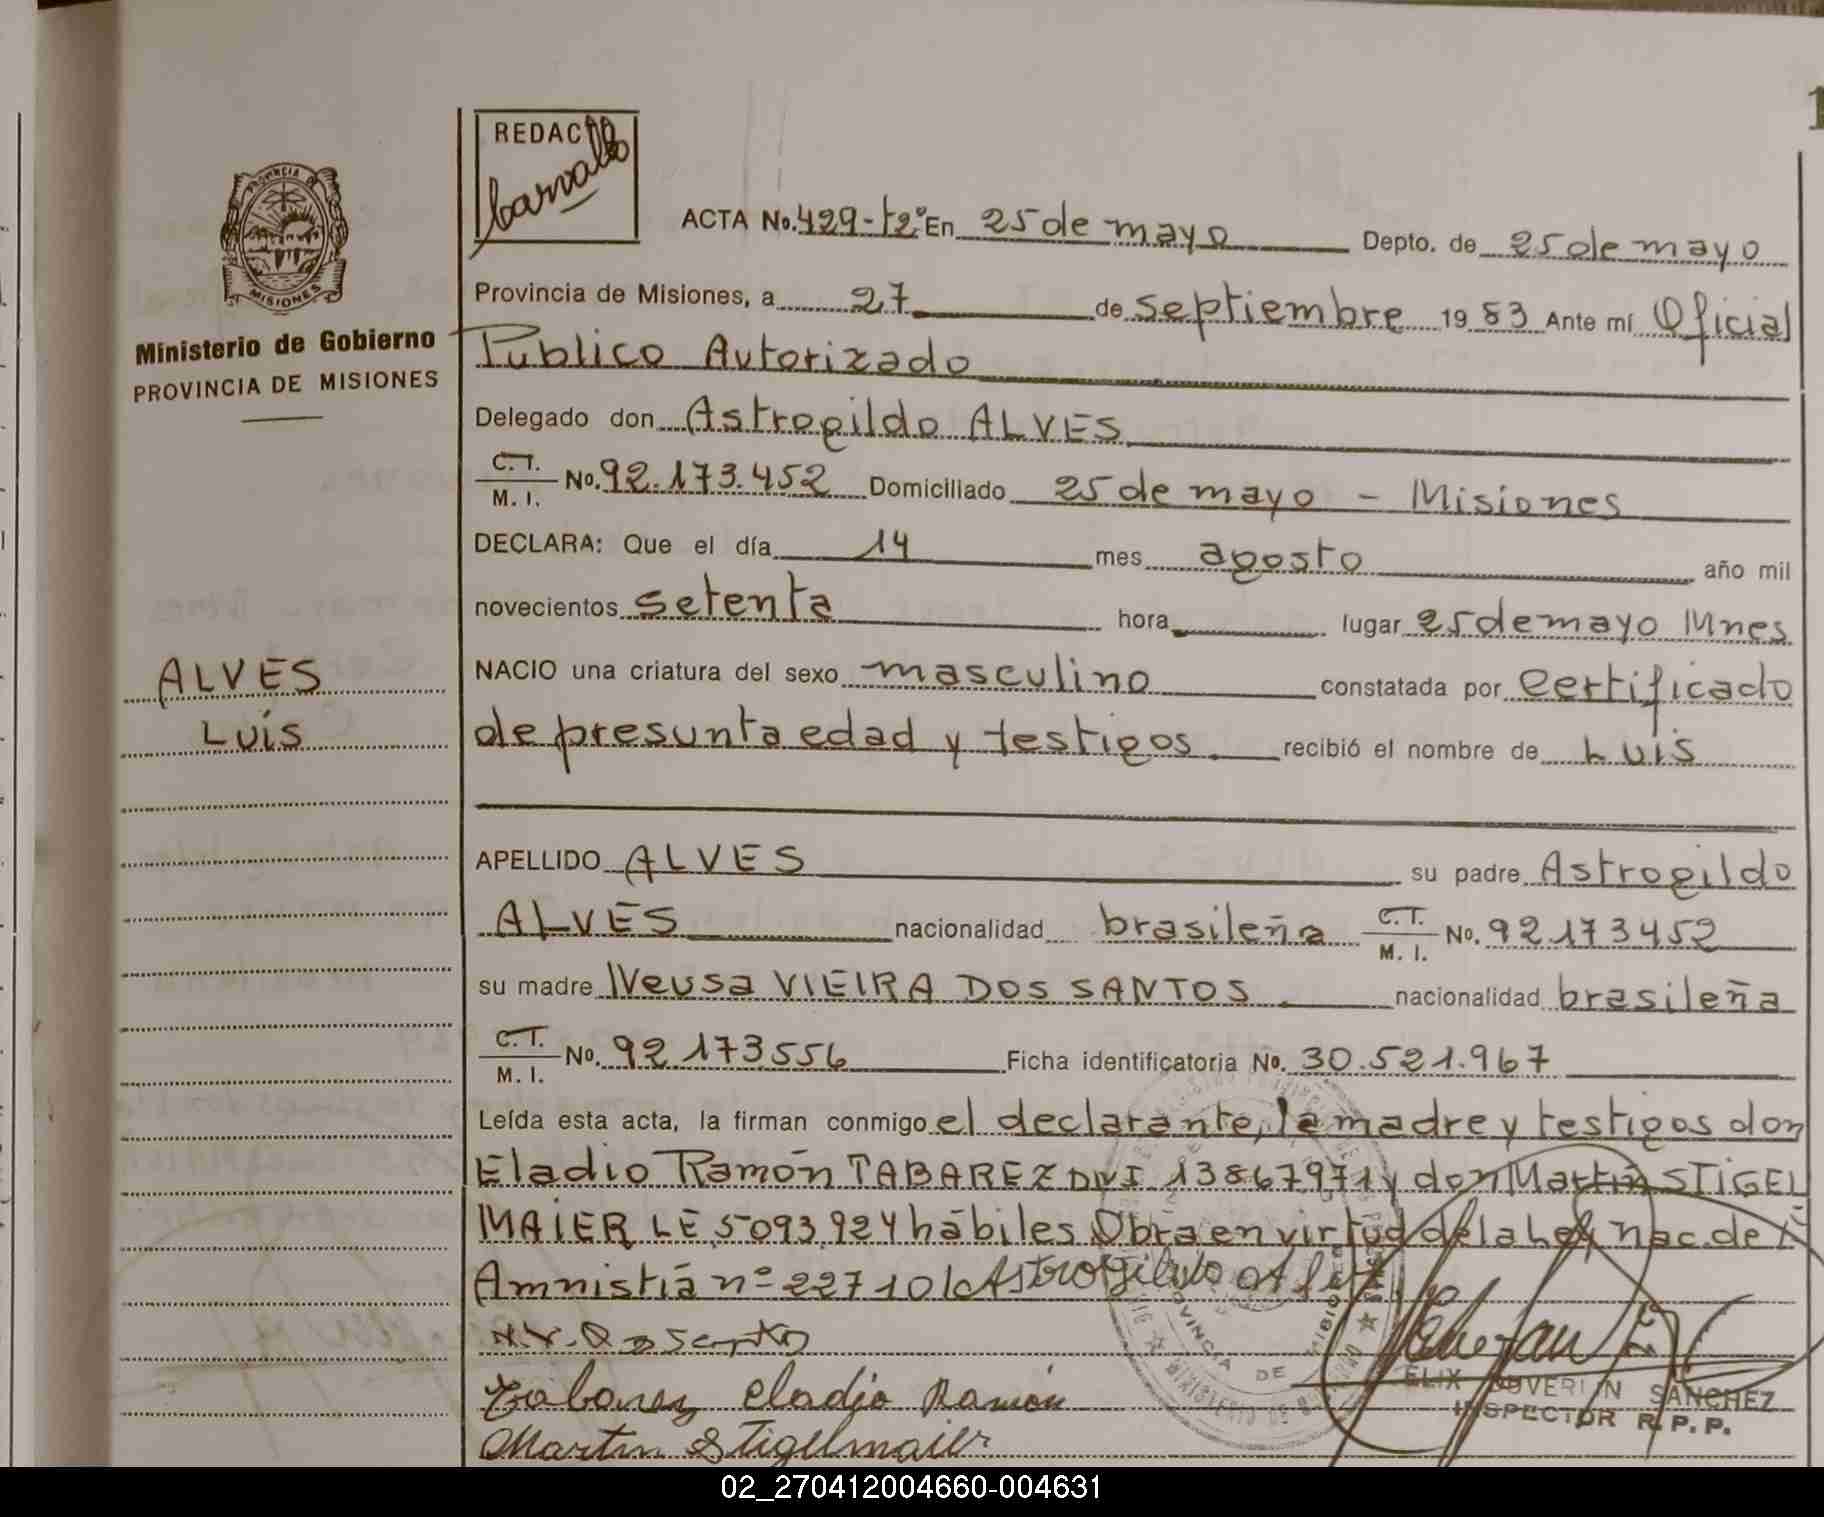 REDACTO
Carvallo
PROVINCIA DE
MISIONES
Ministerio de Gobierno
PROVINCIA DE MISIONES
ACTA No. 429-t2º En 25 de mayo Depto. de 25 de mayo
Provincia de Misiones, a 27 de septiembre 1983 Ante mí Oficial
Publico Autorizado
Delegado don Astrogildo ALVES
C.I.
M. I. No. 92.173.452 Domiciliado 25 de mayo - Misiones
DECLARA: Que el día 14 mes agosto año mil
novecientos setenta hora lugar 25 de mayo Mnes
ALVES
Luis
NACIO una criatura del sexo masculino constatada por certificado
de presunta edad y testigos recibió el nombre de Luis
APELLIDO ALVES su padre Astrogildo
ALVES nacionalidad brasileña C.I. M. I. No. 92173452
su madre Neusa VIEIRA DOS SANTOS nacionalidad brasileña
C.I.
M. I. No. 92 173.556 Ficha identificatoria No. 30.521.967
Leída esta acta, la firman conmigo el declarante, la madre y testigos don
Eladio Ramón TABAREZ DNI 13867971 y don Martín STIGEL
MAIER LE 5093.924 hábiles Obra en virtud de la Ley nac. de
Amnistía nº 22710 Astrogildo
Tabarez eladio Ramón
Martin Stigelmaier
PROVINCIA DE MISIONES
SOVERIN SANCHEZ
INSPECTOR R.P.P.
02_270412004660-004631